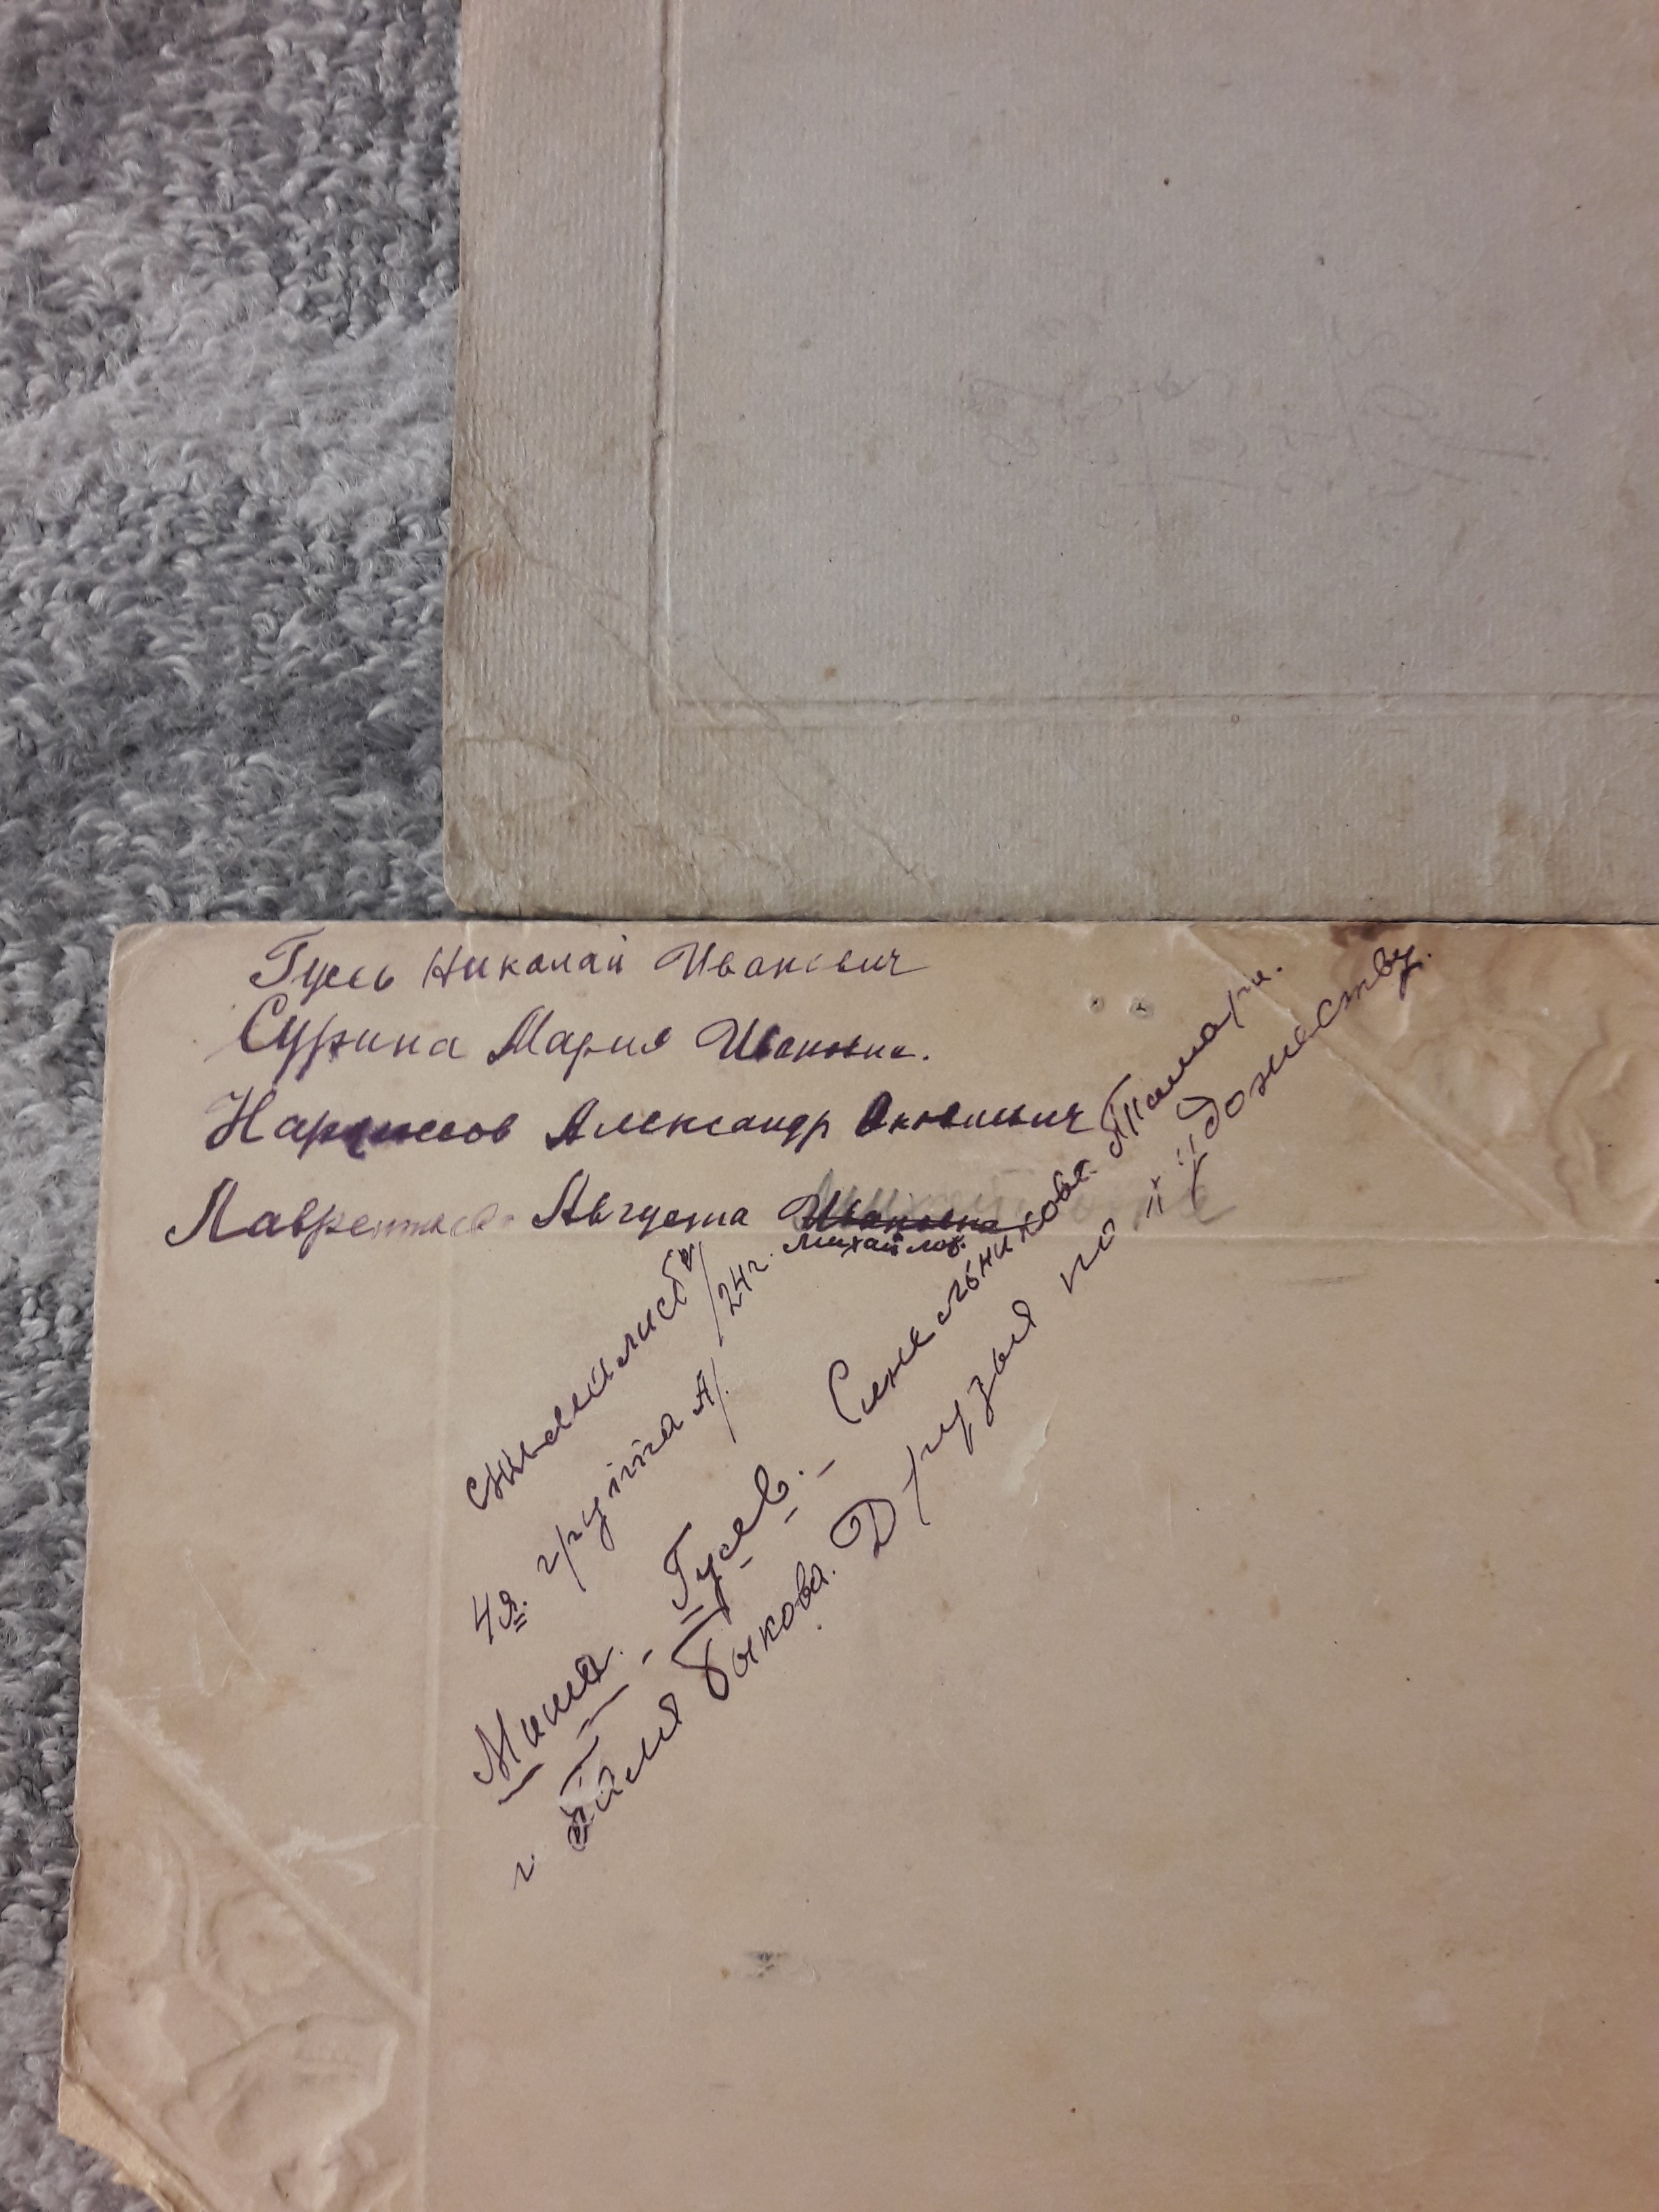 Гусь Николай Иванович
Сурина Мария Ивановна.
Нарциссов Александр
Лаврентьева Августа Ивановна
Михайлов.
снимались в/
4я. группа А/. /24г.
Миша. – Гусев. – Синельникова Тамара.
и Галя Быкова. Друзья по "художеству.